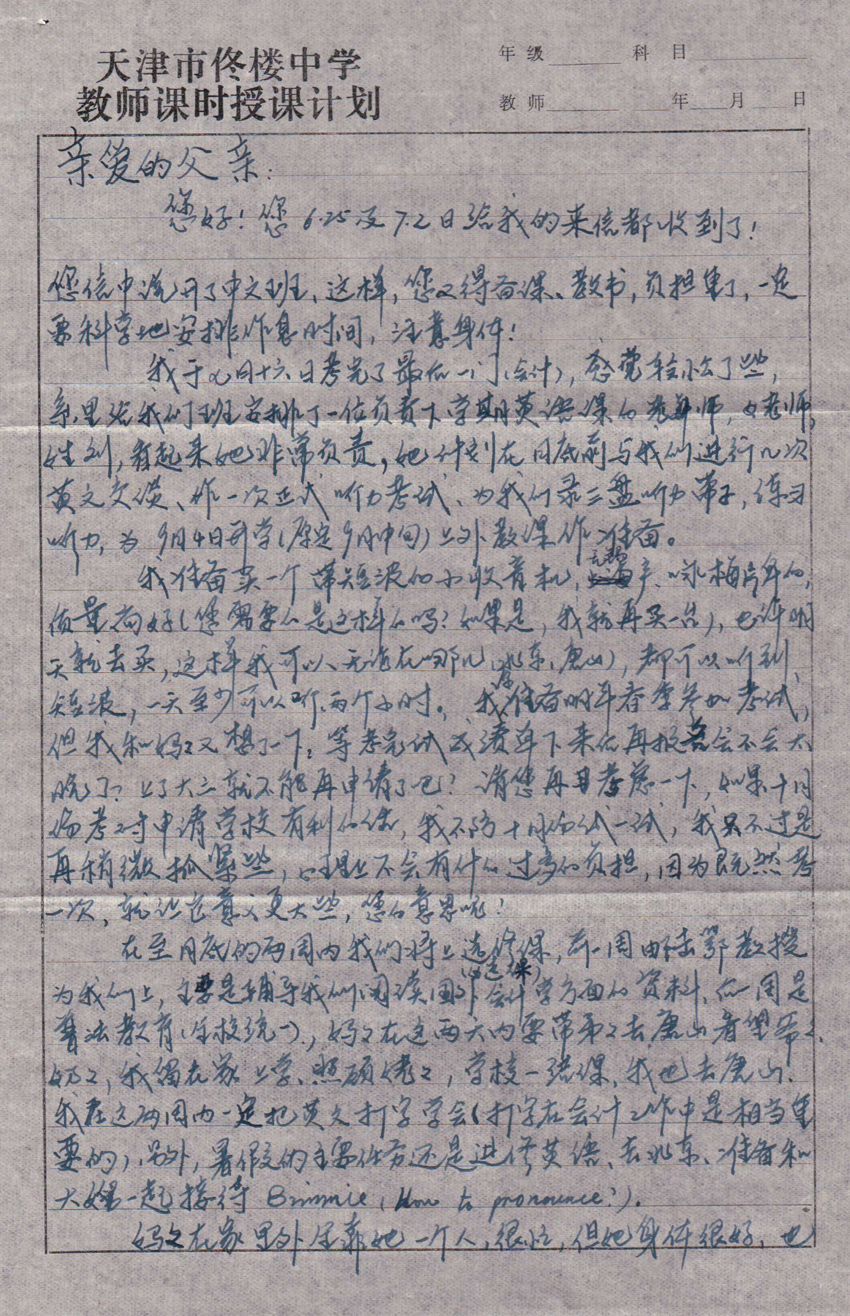 天津市佟楼中学
教师课时授课计划
年级 科目
教师 年 月 日
亲爱的父亲:
您好!您6.25及7.2日给我的来信都收到了!
您信中说开了中文班,这样,您又得备课、教书,负担重了,一定
要科学地安排作息时间,注意身体!
我于七月十六日考完了最后一门(会计),感觉轻松了些,
系里给我们班安排了一位负责下学期英语课的老师,女老师,
姓刘,看起来她非常负责,她计划在月底前与我们进行几次
英文交谈、作一次正式听力考试、为我们录三盘听力带子,练习
听力,为9月4日开学(原定9月中旬)上外教课作准备。
我准备买一个带短波的小收音机,无锡产,咏梅牌的,
质量尚好(您需要的是这样的吗?如果是,我就再买一台),也许明
天就去买,这样我可以无论在哪儿(北京,唐山),都可以听到
短波,一天至少可以听两个小时。我准备明年春季参加考试,
但我和妈妈又想了一下:等考完试或成绩单下来后再报名会不会太
晚了?上了大三就不能再申请了吧?请您再考虑一下,如果十月
份考对申请学校有利的话,我不妨十月份试一试,我只不过是
再稍微抓紧些,心理上不会有什么过多的负担,因为既然考
一次,就让它意义更大些,您的意思呢?
在至月底的两周内我们将上选修课,前一周由 鄂教授
(必选课)
为我们上,主要是辅导我们阅读国外会计学方面的资料,后一周是
普法教育(学校统一),妈妈在这两天内要带弟弟去唐山看望爷爷、
奶奶,我留在家上学、照顾姥姥,学校一结课,我也去唐山.
我在这两周内一定把英文打字学会(打字在会计工作中是相当重
要的),另外,暑假的主要任务还是进修英语、去北京、准备和
大姐一起接待 Binnie (How to pronounce?).
妈妈在家里外全靠她一个人,很忙,但她身体很好,也